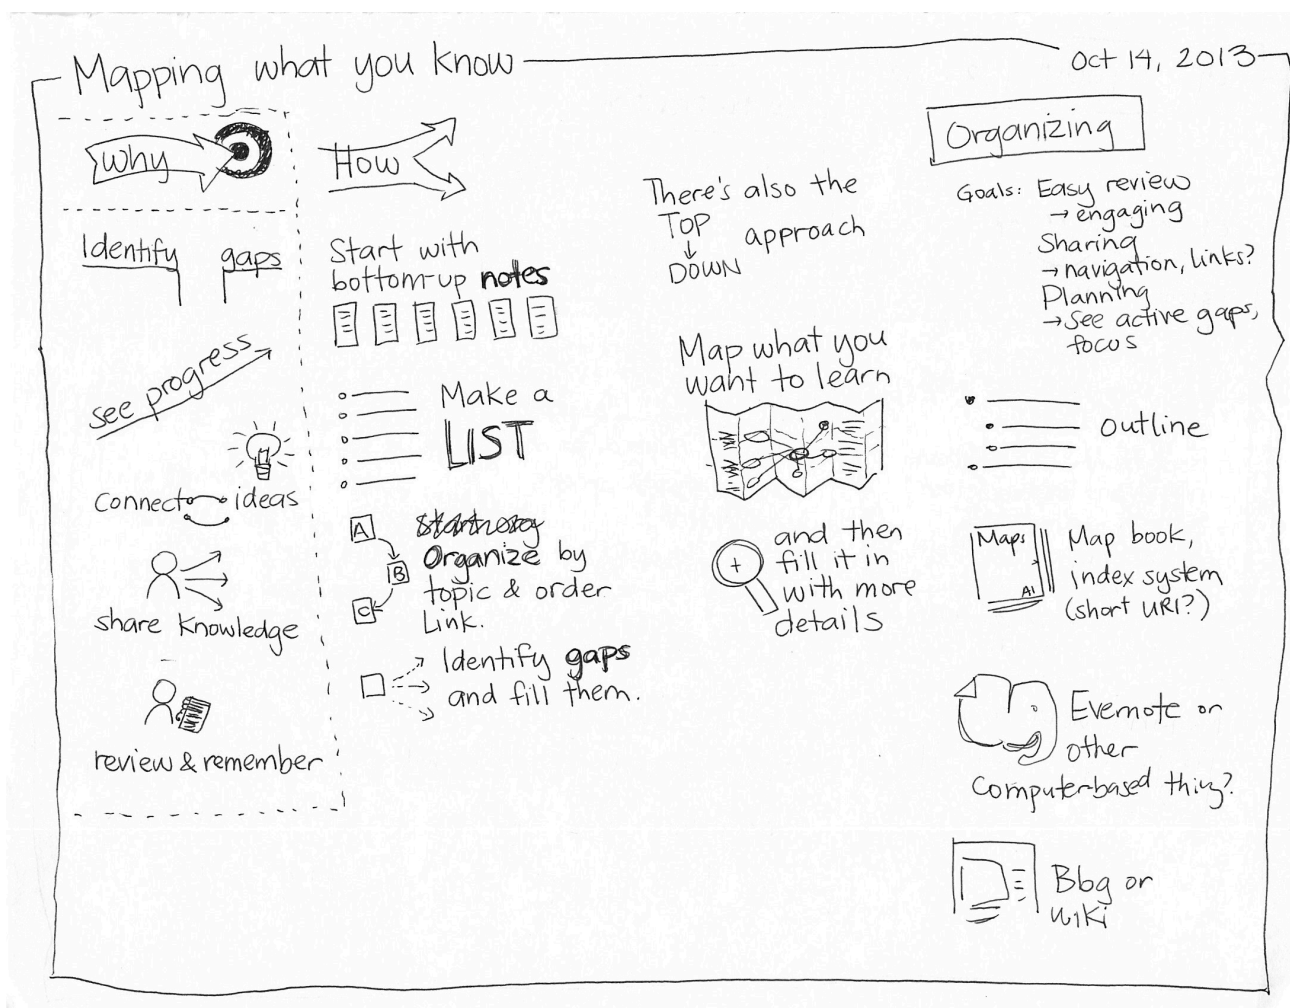 Mapping what you know
Oct 14, 2013
Why
Identify gaps
see progress
connect ideas
share knowledge
review & remember
How
Start with
bottom-up notes
Make a
LIST
A
B
C
Organize by
topic & order
Link.
Identify gaps
and fill them.
There's also the
TOP
DOWN
approach
Map what you
want to learn
+
and then
fill it in
with more
details
Organizing
Goals: Easy review
→ engaging
Sharing
→ navigation, links?
Planning
→ See active gaps,
focus
outline
Maps
A1
Map book,
index system
(short URI?)
Evernote or
other
Computer-based thing?
Blog or
wiki